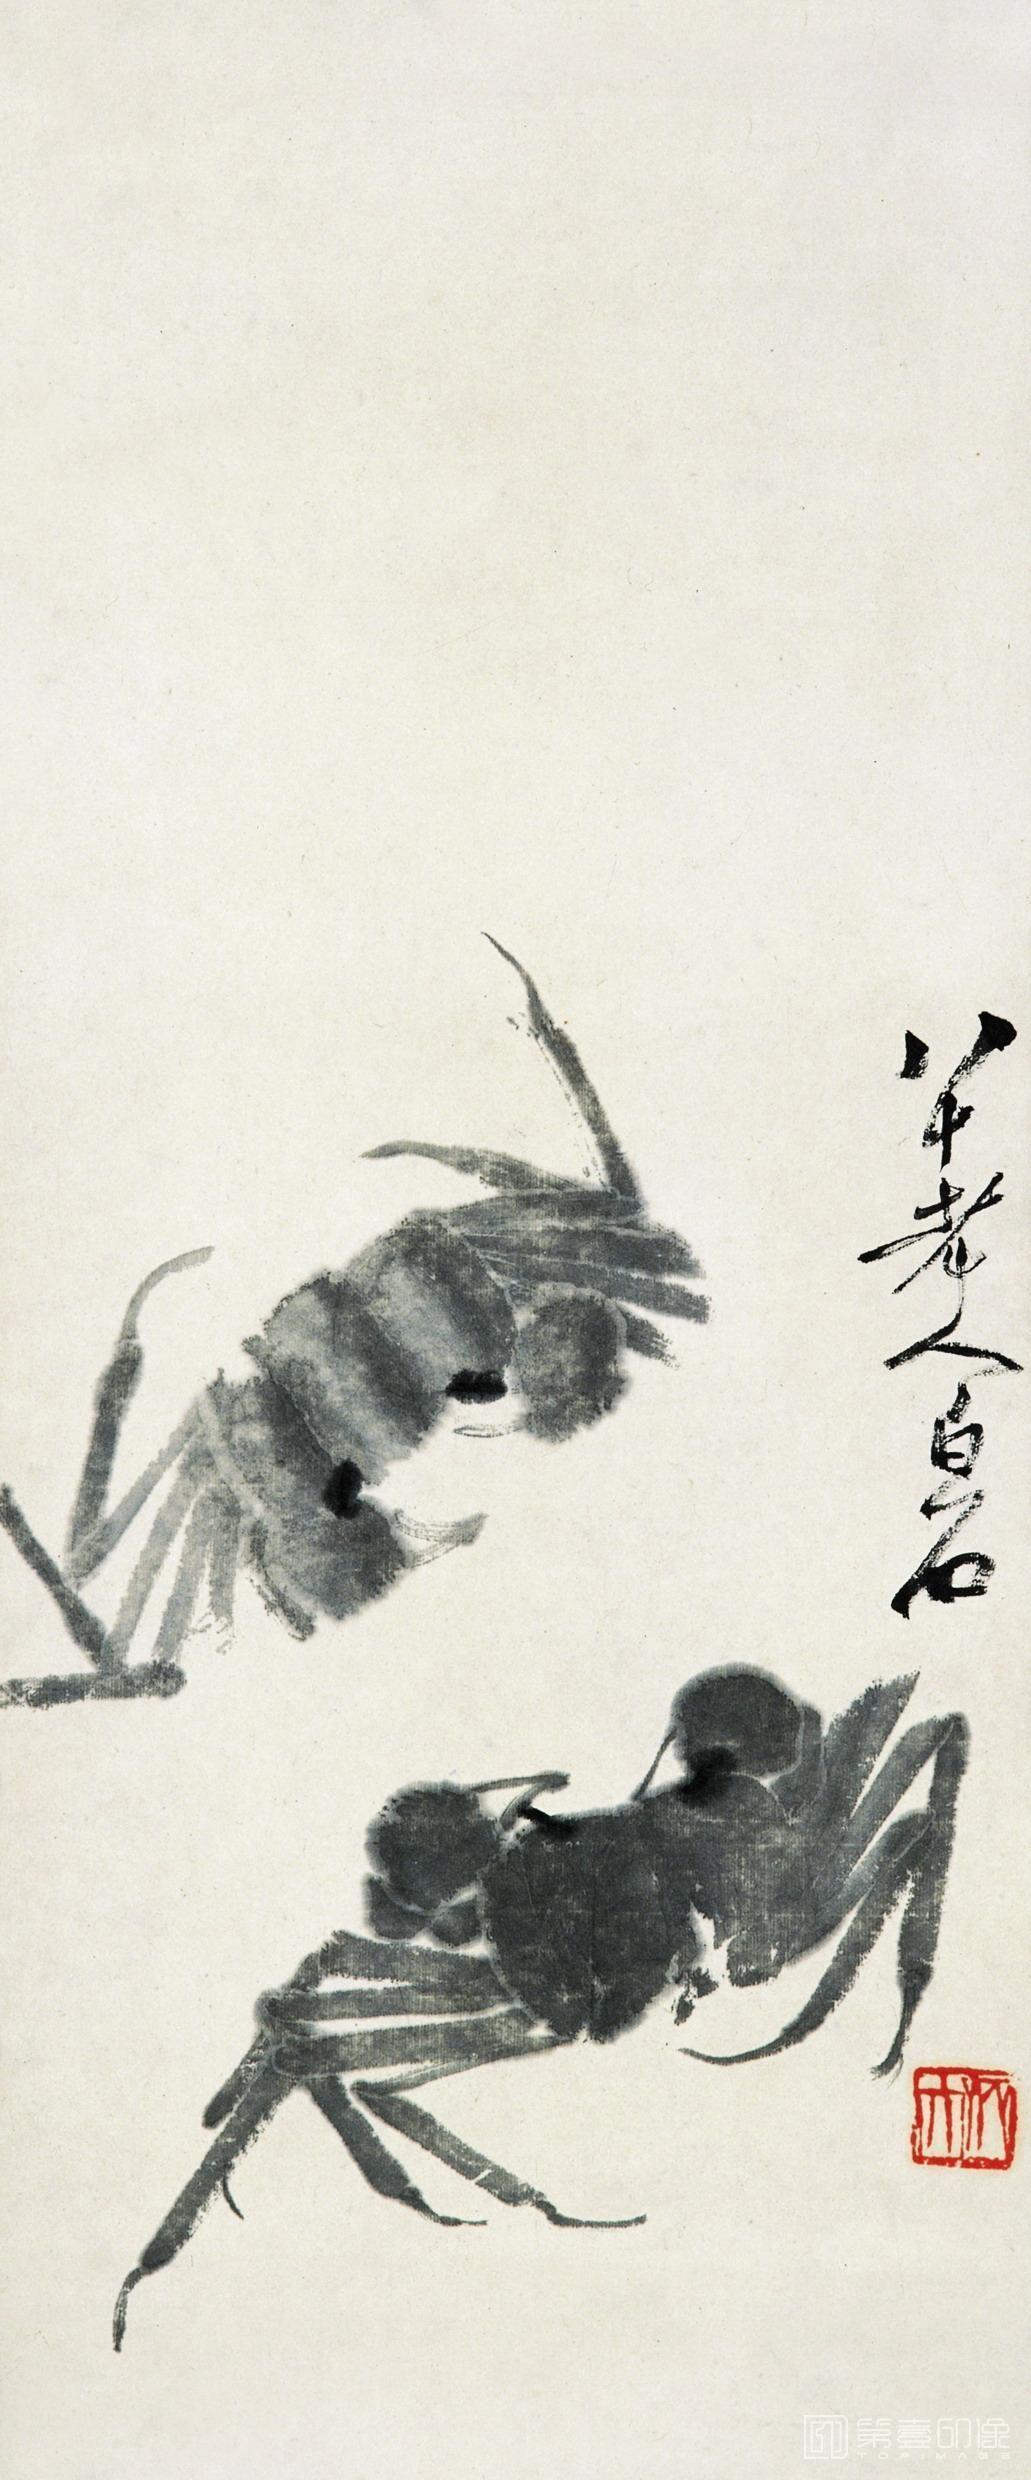 八十老人白石
第壹印像
TOPIMAGE